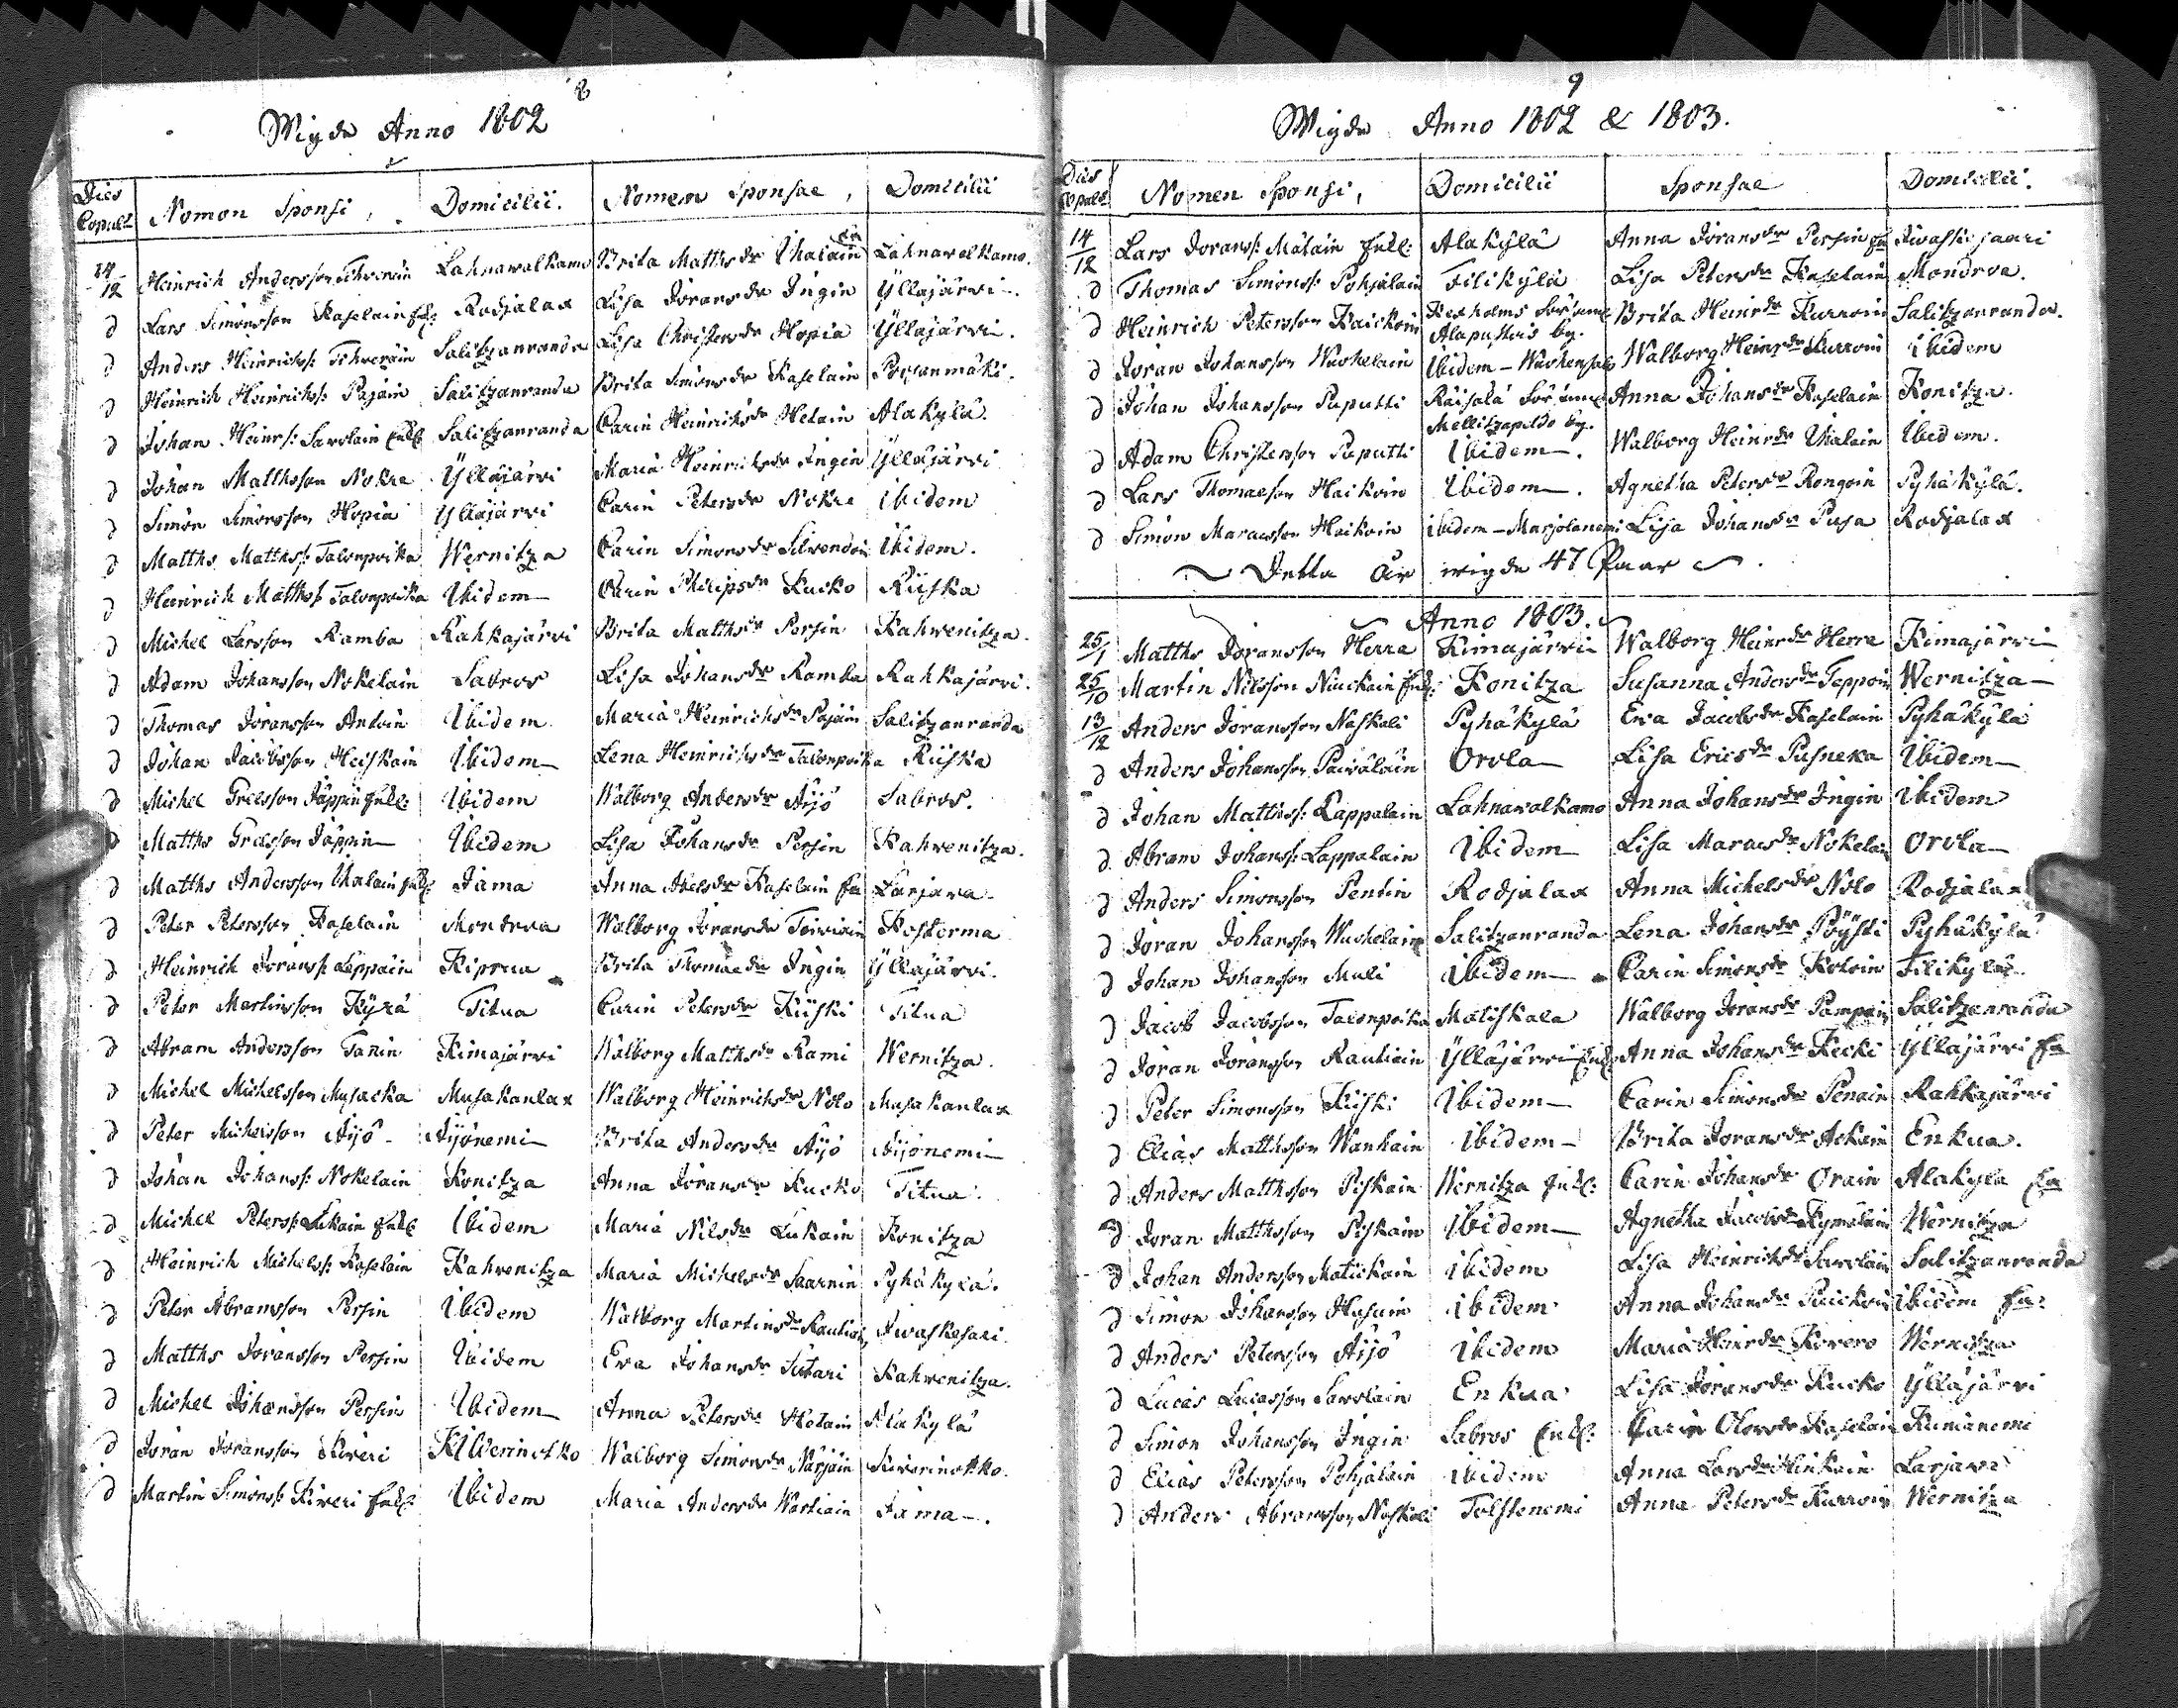 8
Wigde Anno 1802
Dies Copult Nomen Sponsi, Domicilii. Nomen Sponsae, Domicilii
14/12 Heinrich Andersson Lahnawalkamo Brita Matthsdr Uhalain Lahnawalkamo.
d Lars Simonsson Kaselain Rodjalax Lisa Joransdr Ingin Ylläjärvi.
d Anders Heinrichs: Salitzanranda Lisa Christersdr Hopia Ylläjärvi.
d Heinrich Heinrichs: Pajain Salitzanranda Brita Simonsdr Kaselain
d Johan Heinrs: Savolain Enkl Salitzanranda Carin Heinrichsdr Hetain Alakylä.
d Johan Matthsson Nokre Ylläjärvi Maria Heinrichsdr Ingin Ylläjärvi
d Simon Simonsson Hopia Ylläjärvi Carin Petersdr Nokre Ibidem
d Matths Matths: Talonpoika Wernitza Carin Simonsdr Silvendoin Ibidem.
d Heinrich Matths: Talonpoika Ibidem Carin Philipsdr Kucko Riiska
d Michel Larsson Ramba Rahkajärvi Brita Matthsdr Persin Kahwenitza.
d Adam Johansson Nokelain Sabros Lisa Johansdr Ramba Rahkajärvi.
d Thomas Joransson Antoin Ibidem Maria Heinrichsdr Pajain Salitzanranda
d Johan Jacobsson Heiskain Ibidem Lena Heinrichsdr Talonpoika Riiska
d Michel Grelsson Jäppin Enkl: Ibidem Walborg Andersdr Äijö Sabros.
d Matths Grelsson Jäppin Ibidem Lisa Johansdr Persin Kahwenitza.
d Matths Andersson Uhalain Enkl Jama Anna Abelsdr Kaselain Ea Larjava
d Peter Petersson Kaselain Mondrea Walborg Joransdr Kosterma
d Heinrich Jorans: Leppain Kiprua Brita Thomaedr Ingin Ylläjärvi.
d Peter Martinsson Kyrä Titua Carin Petersdr Kiiski Titua
d Abram Andersson Tanin Kimajärvi Walborg Matthsdr Rami Wernitza.
d Michel Michelsson Musacka Musakanlax Walborg Heinrichsdr Nolo Musakanlax
d Peter Michelsson Äijö Äijönemi Brita Andersdr Äijö Äijönemi
d Johan Johans: Nokelain Konitza Anna Joransdr Kucko Titua.
d Michel Peters: Lukain Enkl Ibidem Maria Nilsdr Lukain Konitza
d Heinrich Michels: Kaselain Kahvenitza Maria Michelsdr Saarnin Pyhäkylä.
d Peter Abramsson Persin Ibidem Walborg Martinsdr Rautiain
d Matths Joransson Persin Ibidem Eva Johansdr Sutari Kahwenitza.
d Michel Johansson Persin Ibidem Anna Petersdr Hotain Alakylä
d Joran Joransson Kiveri Walborg Simonsdr Närjäin Kiverinotko.
d Martin Simons: Kiveri Enkl: Ibidem Maria Andersdr Wartiain Jama.
9
Wigde Anno 1802 & 1803.
Dies Copult Nomen Sponsi, Domicilii Sponsae Domicilii.
14/12 Lars Jorans: Mätäin Enkl: Alakylä Anna Joransdr Persin Ea
d Thomas Simons: Pohjalain Tilikylä Lisa Petersdr Kaselain Mondrea.
d Heinrich Petersson Kaickoin Kexholms Sockn Brita Heinrdr Kurroin Salitzanranda.
by.
d Joran Johansson Wuohelain Ibidem Walborg Heinrdr Kurroin Ibidem
d Johan Johansson Puputti Räisälä Anna Johansdr Kaselain Konitza.
Mellitzapeldo by.
d Adam Christersson Puputti Ibidem. Walborg Heinrdr Uhalain Ibidem.
d Lars Thomaesson Haikoin Ibidem. Agnetha Petersdr Rongoin Pyhäkylä.
d Simon Marcusson Haikoin Ibidem Lisa Johansdr Pusa Rodjalax
Detta år wigde 47 Paar
Anno 1803.
25/1 Matths Joransson Herra Kimajärvi Walborg Heinrdr Herra Kimajärvi
25/10 Martin Nilsson Enkl: Konitza Susanna Andersdr Teppoin Wernitza
13/12 Anders Joransson Naskali Pyhäkylä Eva Jacobsdr Kaselain Pyhäkylä
d Anders Johansson Paiväläin Orola Lisa Ericsdr Pusneka Ibidem
d Johan Matths: Lappalain Lahnawalkamo Anna Johansdr Ingin Ibidem
d Abram Johans: Lappalain Ibidem Lisa Marcusdr Nokelain Orola
d Anders Simonsson Pentin Rodjalax Anna Michelsdr Nolo Rodjalax
d Joran Johansson Wuohelain Salitzanranda Lena Johansdr Pöysti Pyhäkylä
d Johan Johansson Muli Ibidem Carin Simonsdr Kotoin Tilikylä
d Jacob Jacobsson Talonpoika Matiskala Walborg Joransdr Pampain Salitzanranda
d Joran Joransson Rautiain Ylläjärvi Enkl Anna Johansdr Kecki Ylläjärvi Ea
d Peter Simonsson Kiiski Ibidem Carin Simonsdr Penain Rahkajärvi
d Elias Matthsson Wanhain Ibidem Brita Joransdr Ackain Enkua.
d Anders Matthsson Piskain Wernitza Enkl: Carin Johansdr Orain Alakylä Ea
d Joran Matthsson Piskain Ibidem Agnetha Jacobsdr Kymäläin Wernitza
d Johan Andersson Matickain Ibidem Lisa Heinrichsdr Savolain Salitzanranda
d Simon Johansson Husuin Ibidem Anna Johansdr Ibidem Ea:
d Anders Petersson Äijö Ibidem Maria Heinrdr Korvero Wernitza
d Lucas Lucasson Savolain Enkua Lisa Joransdr Kucko Ylläjärvi
d Simon Johansson Ingin Sabros Enkl: Carin Olovsdr Kaselain Kunianemi
d Elias Petersson Pohjalain Ibidem Anna Larsdr Hinkain Larjava
d Anders Abramsson Naskali Tolstenemi Anna Petersdr Kurroin Wernitza